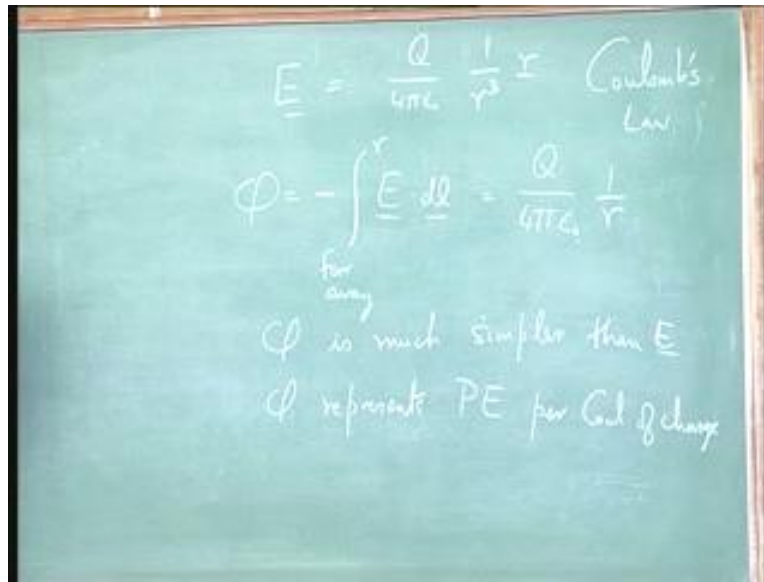 E = Q/4πε₀ 1/r³ r Coulomb's
Law
φ = - ∫ʳ E · dl = Q/4πε₀ 1/r
far
away
φ is much simpler than E
φ represents PE per Coul of charge